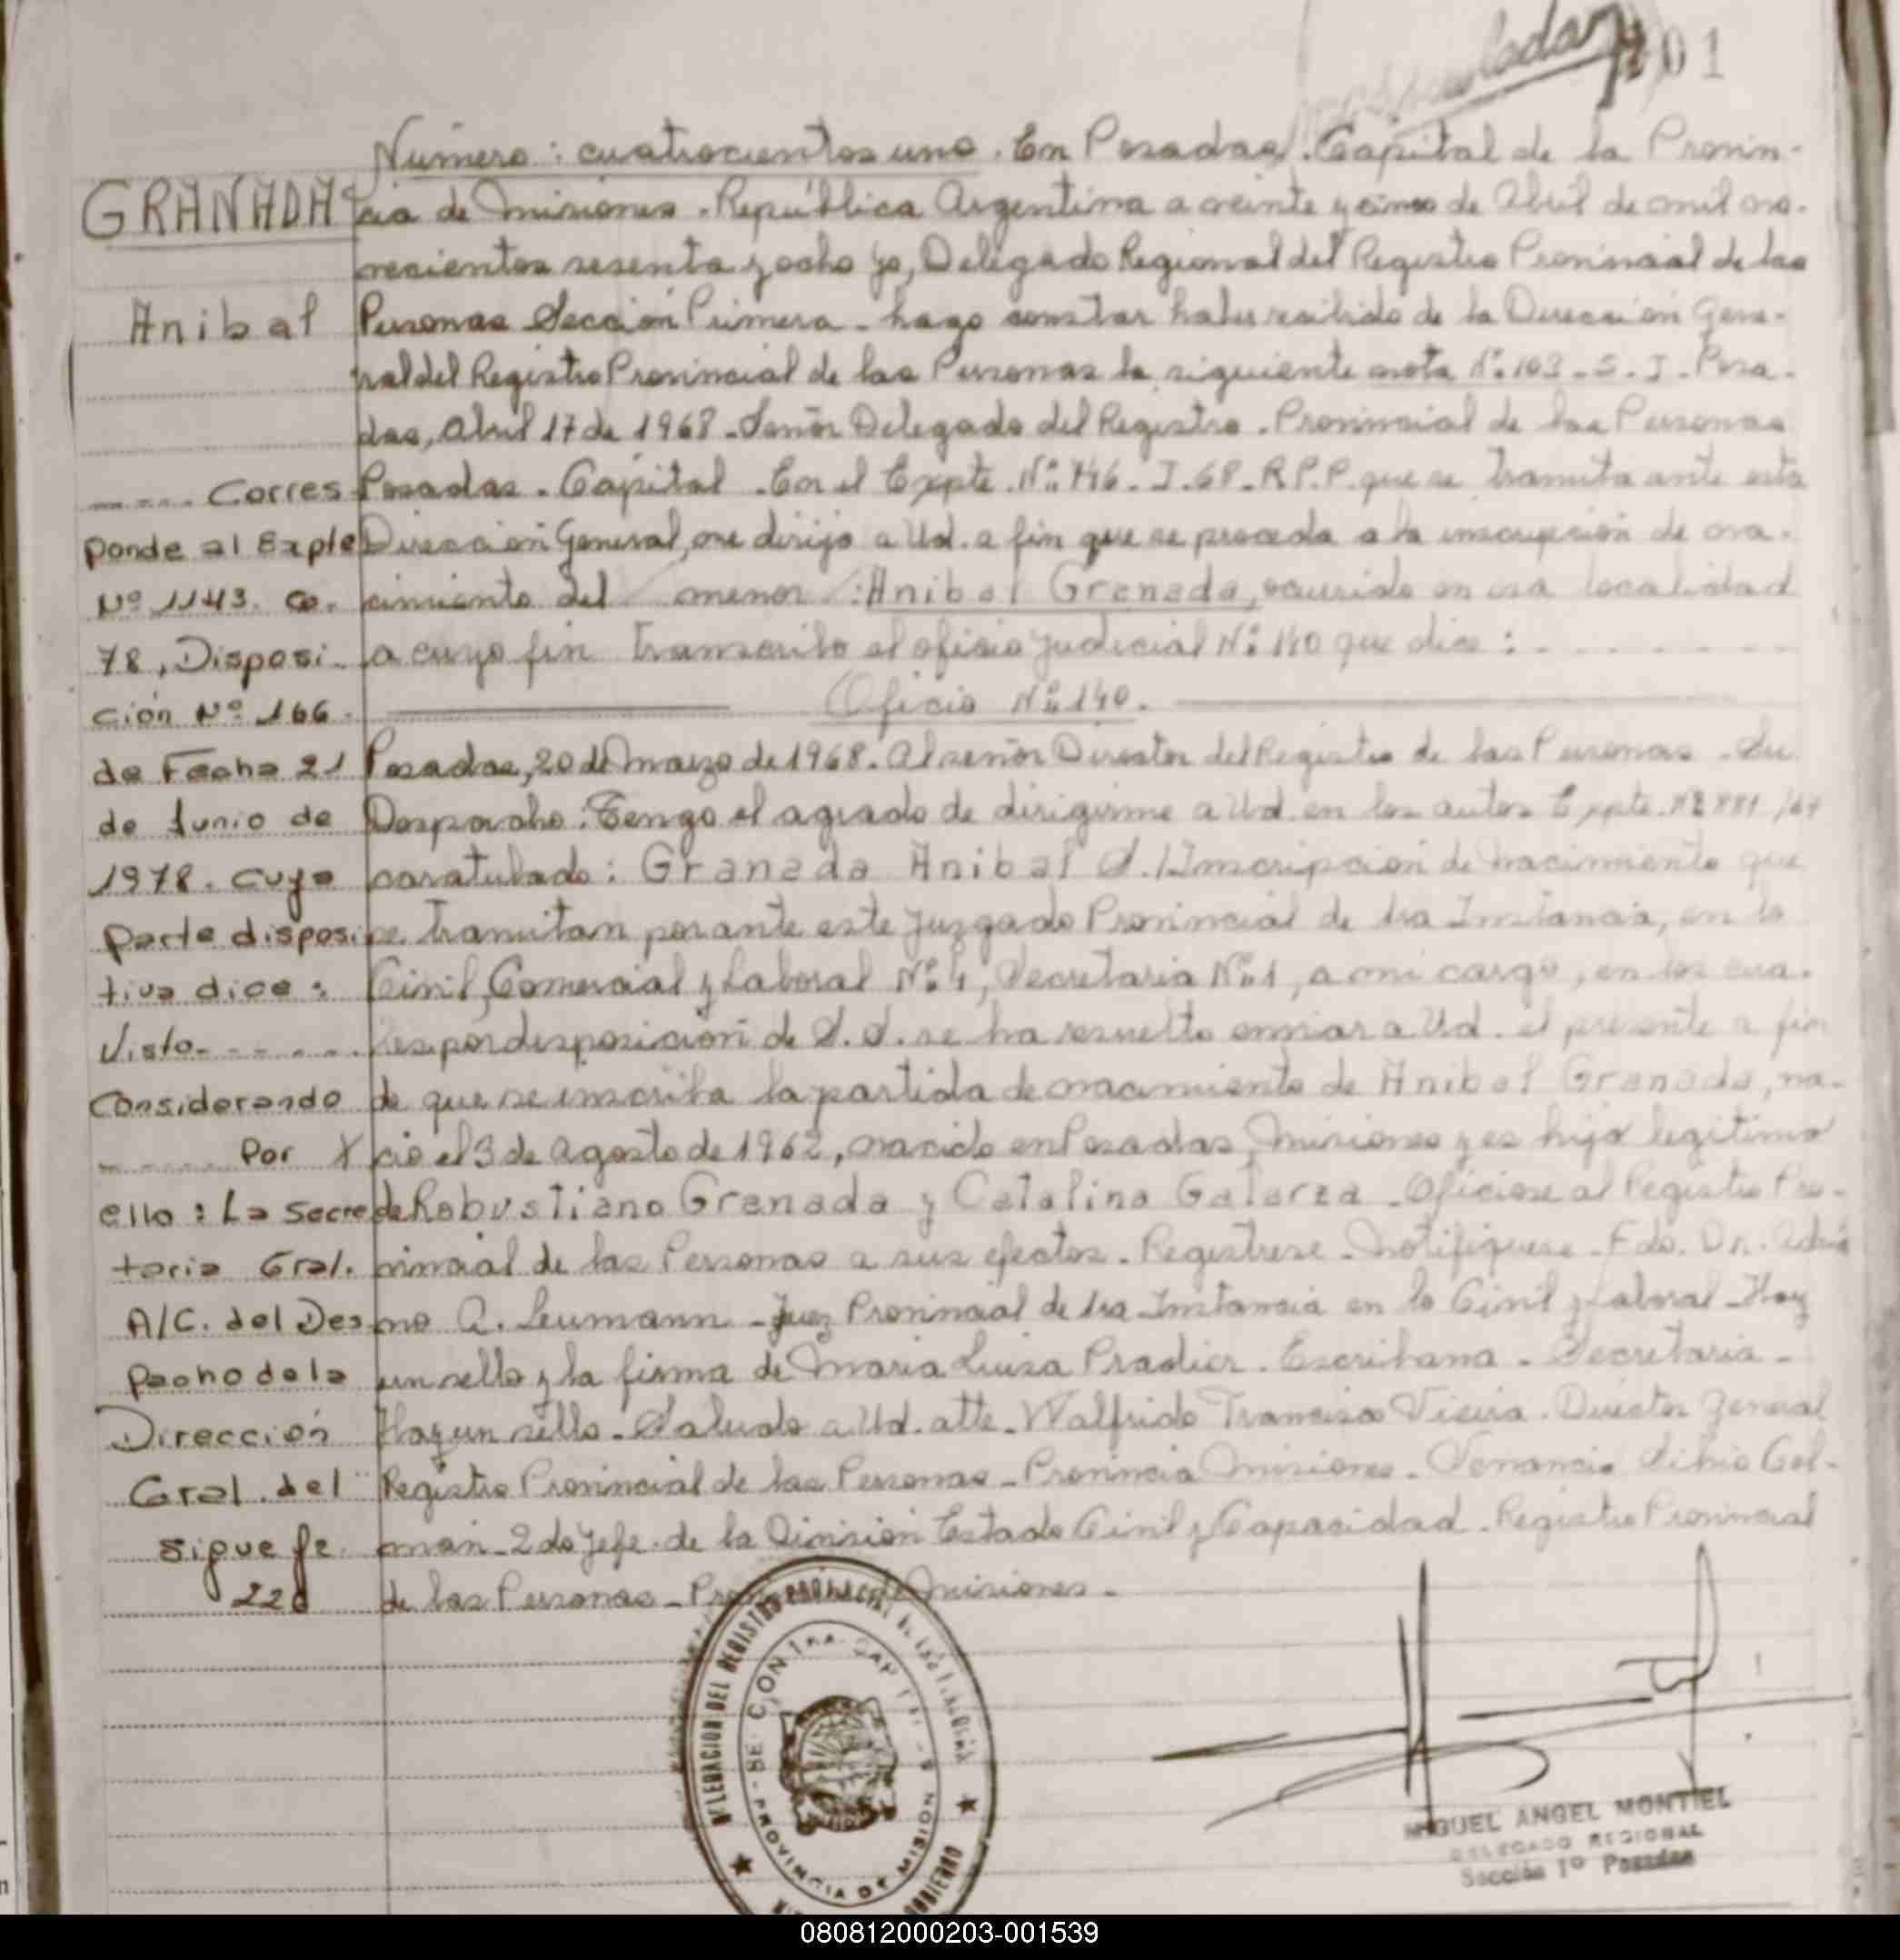 401
Número: cuatrocientos uno. En Posadas. Capital de la Provin-
GRANADA
cia de Misiones. República Argentina a veinte y cinco de Abril de mil no-
vecientos sesenta y ocho yo, Delegado Regional del Registro Provincial de las
Anibal
Personas Sección Primera. hago constar haber recibido de la Dirección Gene-
ral del Registro Provincial de las Personas la siguiente nota Nº 103-S.I. Posa-
das, Abril 17 de 1968. Señor Delegado del Registro. Provincial de las Personas
Posadas. Capital. En el Expte. Nº 746-I.68-R.P.P. que se tramita ante esta
Dirección General, me dirijo a Ud. a fin que se proceda a la inscripción de na-
cimiento del menor: Anibal Granada, ocurrido en esa localidad
a cuyo fin transcribo el oficio judicial Nº 140 que dice:
Oficio Nº 140.
Posadas, 20 de Marzo de 1968. Al señor Director del Registro de las Personas. Su
Despacho: Tengo el agrado de dirigirme a Ud. en los autos Expte. Nº 881/67
caratulado: Granada Anibal S./Inscripción de nacimiento que
se tramitan por ante este Juzgado Provincial de 1ra Instancia, en lo
Civil, Comercial y Laboral Nº 4, Secretaria Nº 1, a mi cargo, en los cua-
les por disposición de S.S. se ha resuelto enviar a Ud. el presente a fin
de que se inscriba la partida de nacimiento de Anibal Granada, na-
ció el 3 de Agosto de 1962, nacido en Posadas, Misiones y es hijo legítimo
de Robustiano Granada y Catalina Gatarza. Oficiese al Registro Pro-
vincial de las Personas a sus efectos. Registrese. Notifiquese. Fdo. Dr. Adria
no A. Leumann. Juez Provincial de 1ra Instancia en lo Civil y Laboral. Hay
un sello y la firma de Maria Luisa Pradier. Escribana. Secretaria.
Hay un sello. Saludo a Ud. atte. Walfrido Francisco Vieira. Director General
Registro Provincial de las Personas. Provincia Misiones. Venancio Silvio Gol-
man. 2do Jefe de la División Estado Civil y Capacidad. Registro Provincial
de las Personas. Provincia de Misiones.
..... Corres
ponde al Expte
Nº 1143. G.
78, Disposi-
ción Nº 166.
de Fecha 21
de Junio de
1978. cuya
parte disposi
tiva dice:
Visto.....
Considerando
..... Por
ello: La Secre
taria Gral.
A/C. del Des
pacho de la
Dirección
Gral. del
sigue fe.
220
DELEGACION DEL REGISTRO PROVINCIAL DE LAS PERSONAS
SECCION 1ra. CAPITAL
PROVINCIA DE MISIONES
GOBIERNO
MIGUEL ANGEL MONTIEL
DELEGADO REGIONAL
Sección 1º Posadas
080812000203-001539